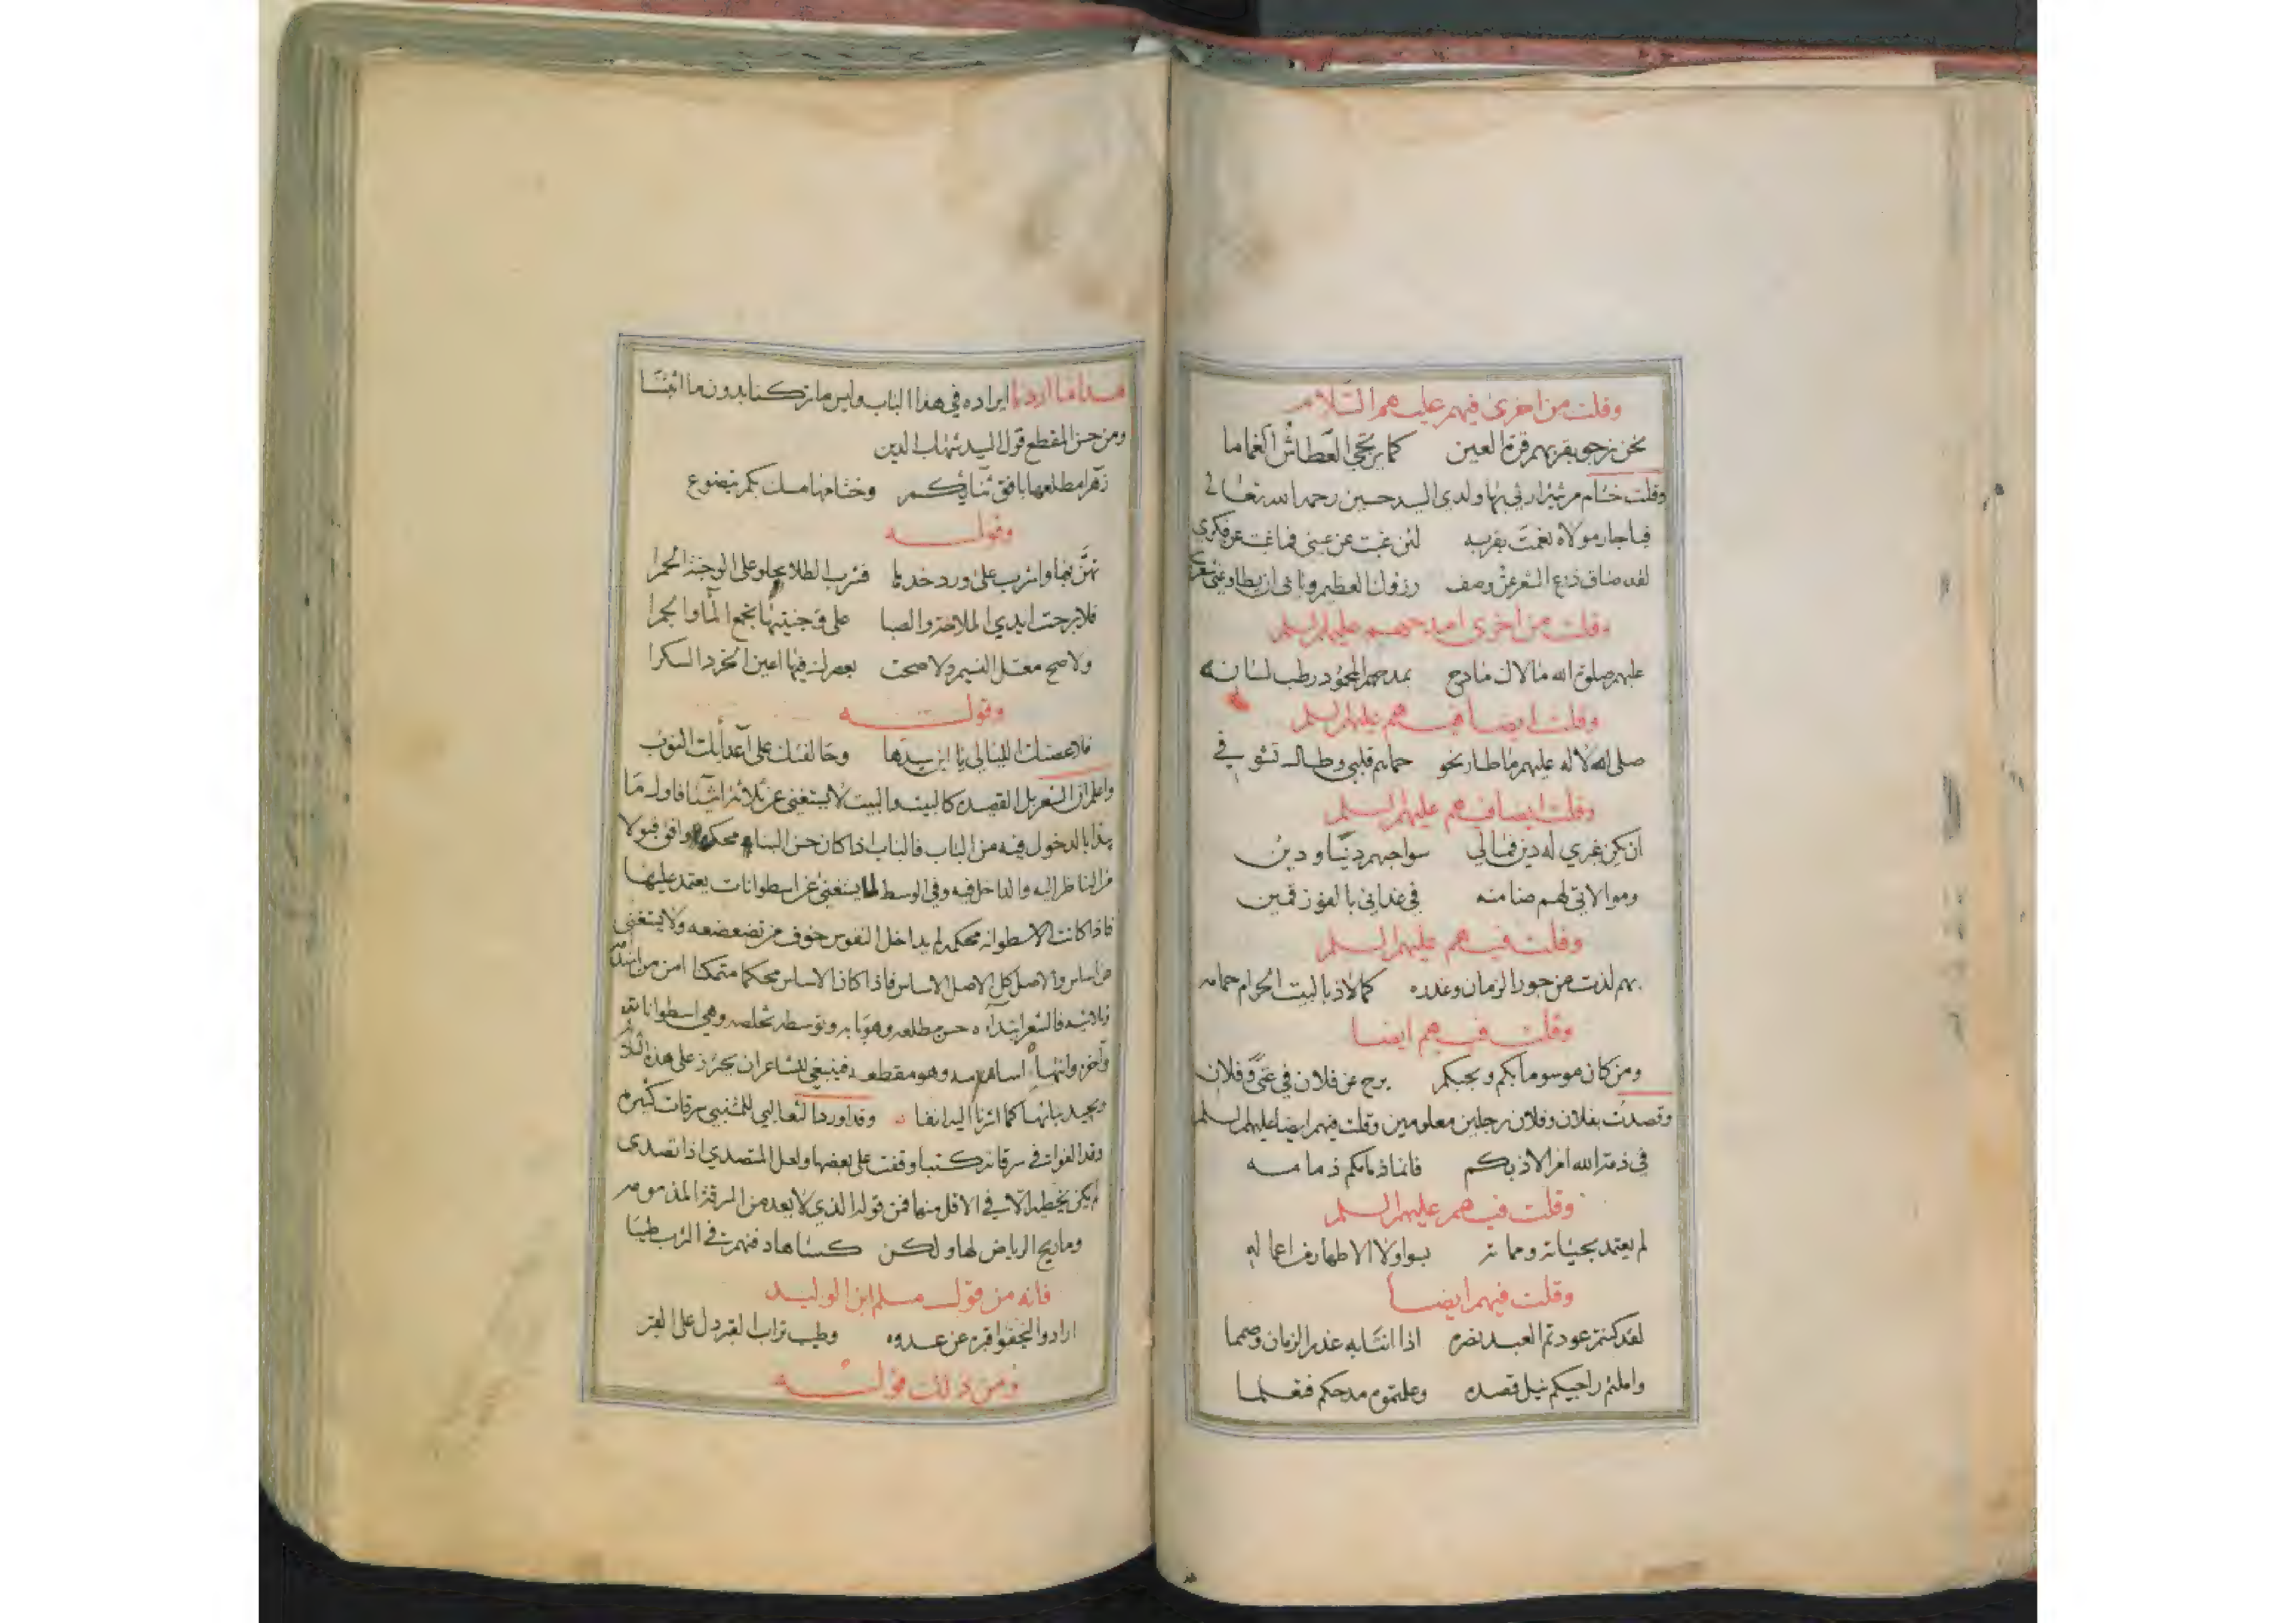 وقلت من اخرى فيهم عليهم السلام
نحن نرجو بقربهم قرة العين كما يرتجي العطاش الغماما
وقلت ختام مرثية ارثي بها ولدي السيد حسين رحمه الله تعالى
فيا جار مولاه نعمت بقربه لئن غبت عن عيني فما غبت عن فكري
لقد ضاق ذرع الشعر عن وصف رزؤنا العظيم
وقلت من اخرى امدحهم عليهم السلم
عليهم صلوة الله ما لاك مادح بمدحهم المحمود رطب لسانه
وقلت ايضا فيهم عليهم السلم
صلى الاله عليهم ما طار نحو حماهم قلبي وطال تشوقي
وقلت ايضا فيهم عليهم السلم
ان يكن غيري له دين فمالي سوا حبهم دنيا ودين
وموالاتي لهم ضامنه في غد اني بالفوز قمين
وقلت فيهم عليهم السلم
بهم لذت من جور الزمان وغدره كما لاذ بالبيت الحرام حمامه
وقلت فيهم ايضا
ومن كان موسوما بكم وبحبكم يرح عن فلان في غنى وفلان
وقصدت بفلان وفلان رجلين معلومين وقلت فيهم ايضا عليهم السلم
في ذمة الله امرا لاذ بكم فانما ذمامكم ذمامه
وقلت فيهم عليهم السلم
لم يعتمد بحياته ومماته بسوا ولا الاطهار من اعماله
وقلت فيهم ايضا
لقد كنتم عودتم العبد نصره اذا انتابه غدر الزمان وصمما
واملتم راجيكم نيل قصده وعلمتموه مدحكم فتعلما
هذا ما اردنا ايراده في هذا الباب وليس ما تركناه بدون ما اثبتنا
ومن حسن المقطع قول السيد شهاب الدين
زهرا مطلعها بافق ثنائكم وختامها مسك بكم يتضوع
وقوله
تهن بها واشرب على ورد خدها فشرب الطلا يحلو على الوجنة الحمرا
فلا برحت ايدي الملاحة والصبا على وجنتيها تجمع الماء والجمرا
ولا صح معتل النسيم ولا صحت بعصرك فيها اعين الخرد السكرا
وقوله
فلا عصتك الليالي يا ابن سيدها وحالفتك على اعدائك النوب
واعلم ان الشعر بل القصيده كالبيت والبيت لا يستغني عن ثلاثة اشيا فاول ما
يبدا بالدخول فيه من الباب فالباب اذا كان حسن البناء محكما وافق قبولا
من الناظر اليه والداخل فيه وفي الوسط لا يستغني عن اسطوانات يعتمد عليها
فاذا كانت الاسطوانه محكمه لم يداخل النفوس خوف من تضعضعه ولا يستغني
عن اساس والاصل كل الاصل الاساس فاذا كان الاساس محكما متمكنا امن من
فالشعر ابتداء حسن مطلعه وهو بابه وتوسطه تخلصه وهي اسطواناته
وآخره وانتهاء اساسه وهو مقطعه فينبغي للشاعر ان يحرز على هذه
ويجيد بيانها كما اشرنا اليه انفا وقد اورد الثعالبي للمتنبي سرقات كثيره
وقد الفوا في سرقاته كتبا وقفت على بعضها ولعل المتصدي اذا تصدى
لم يكن يخطيه الا في الاقل منها فمن قوله الذي لا يعد من السرقة المذمومه
وما ريح الرياض لها ولكن كساها دفنهم في الترب طيبا
فانه من قول مسلم ابن الوليد
ارادوا ليخفوا قبره عن عدوه وطيب تراب القبر دل على القبر
ومن ذلك قوله